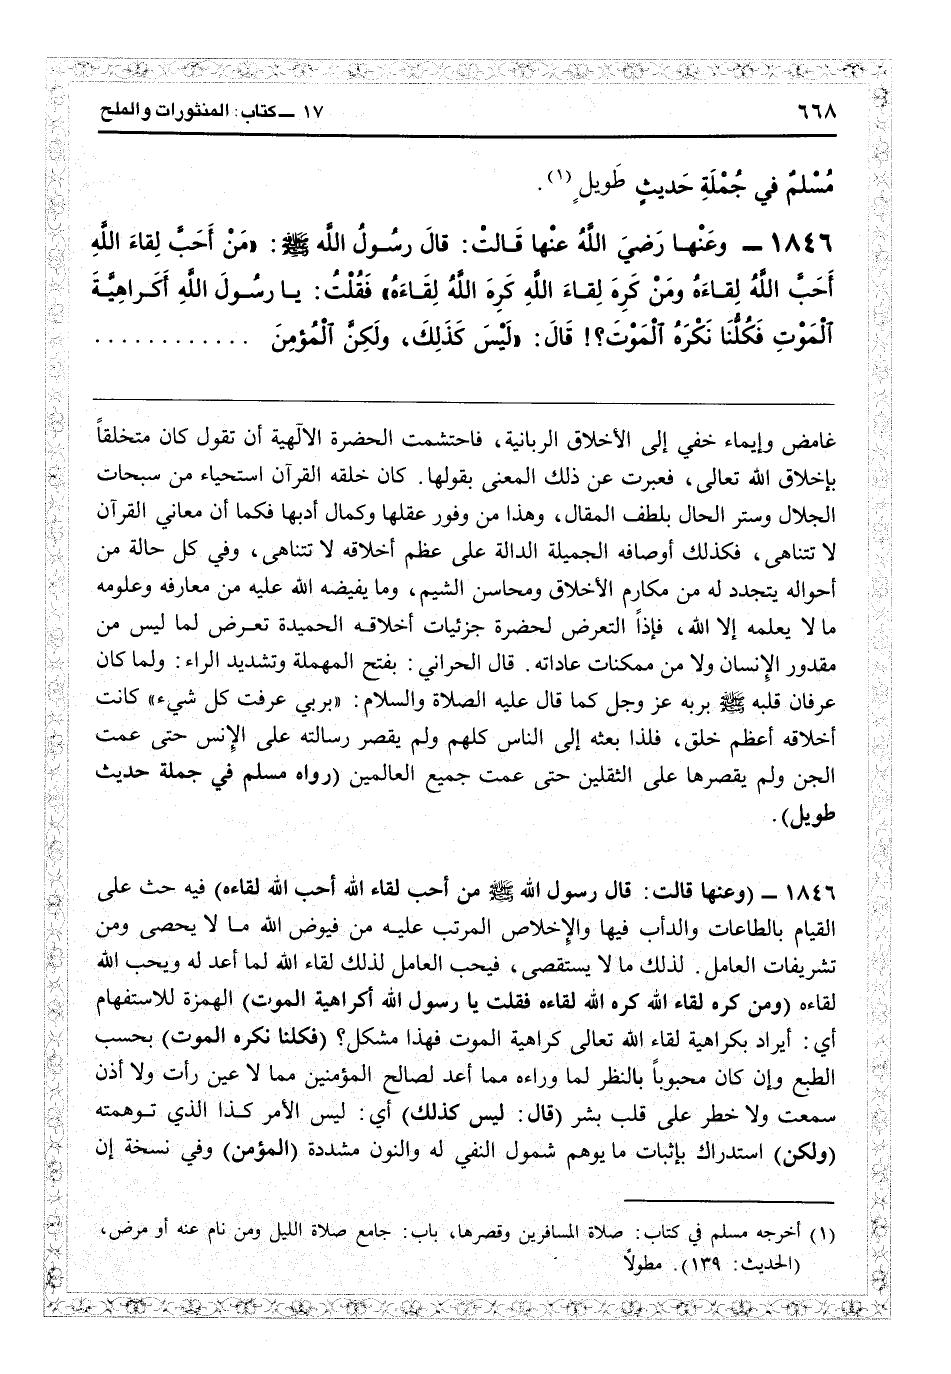 ٦٦٨
١٧ ــ كتاب: المنثورات والملح
مُسْلمٌ في جُمْلَةِ حَديثٍ طَويلٍ(١).
١٨٤٦ ــ وعَنْهـا رَضيَ اللَّهُ عنْها قَـالتْ: قالَ رسُـولُ اللَّه ﷺ: «مَنْ أَحَبَّ لِقاءَ اللَّهِ
أَحَبَّ اللَّهُ لِقـاءَهُ ومَنْ كَرِهَ لِقـاءَ اللَّهِ كَرِهَ اللَّهُ لِقَاءَهُ» فَقُلْتُ: يـا رسُـولَ اللَّهِ أَكَـراهِيَّـةَ
ٱلْمَوْتِ فَكُلُّنَا نَكْرَهُ ٱلْمَوْتَ؟! قَالَ: «لَيْسَ كَذَلِكَ، ولَكِنَّ ٱلْمُؤمِنَ . . . . . . . . . . . .
غامض وإيماء خفي إلى الأخلاق الربانية، فاحتشمت الحضرة الالٓهية أن تقول كان متخلقاً
بإخلاق الله تعالى، فعبرت عن ذلك المعنى بقولها. كان خلقه القرآن استحياء من سبحات
الجلال وستر الحال بلطف المقال، وهذا من وفور عقلها وكمال أدبها فكما أن معاني القرآن
لا تتناهى، فكذلك أوصافه الجميلة الدالة على عظم أخلاقه لا تتناهى، وفي كل حالة من
أحواله يتجدد له من مكارم الأخلاق ومحاسن الشيم، وما يفيضه الله عليه من معارفه وعلومه
ما لا يعلمه إلا الله، فإذاً التعرض لحضرة جزئيات أخلاقـه الحميدة تعـرض لما ليس من
مقدور الإنسان ولا من ممكنات عاداته. قال الحراني: بفتح المهملة وتشديد الراء: ولما كان
عرفان قلبه ﷺ بربه عز وجل كما قال عليه الصلاة والسلام: «بربي عرفت كل شيء» كانت
أخلاقه أعظم خلق، فلذا بعثه إلى الناس كلهم ولم يقصر رسالته على الإنس حتى عمت
الجن ولم يقصرها على الثقلين حتى عمت جميع العالمين (رواه مسلم في جملة حديث
طويل).
١٨٤٦ ــ (وعنها قالت: قال رسول الله ﷺ من أحب لقاء الله أحب الله لقاءه) فيه حث على
القيام بالطاعات والدأب فيها والإخلاص المرتب عليـه من فيوض الله مـا لا يحصى ومن
تشريفات العامل. لذلك ما لا يستقصى، فيحب العامل لذلك لقاء الله لما أعد له ويحب الله
لقاءه (ومن كره لقاء الله كره الله لقاءه فقلت يا رسول الله أكراهية الموت) الهمزة للاستفهام
أي: أيراد بكراهية لقاء الله تعالى كراهية الموت فهذا مشكل؟ (فكلنا نكره الموت) بحسب
الطبع وإن كان محبوباً بالنظر لما وراءه مما أعد لصالح المؤمنين مما لا عين رأت ولا أذن
سمعت ولا خطر على قلب بشر (قال: ليس كذلك) أي: ليس الأمر كـذا الذي تـوهمته
(ولكن) استدراك بإثبات ما يوهم شمول النفي له والنون مشددة (المؤمن) وفي نسخة إن
(١) أخرجه مسلم في كتاب: صلاة المسافرين وقصرها، باب: جامع صلاة الليل ومن نام عنه أو مرض،
(الحديث: ١٣٩). مطولاً